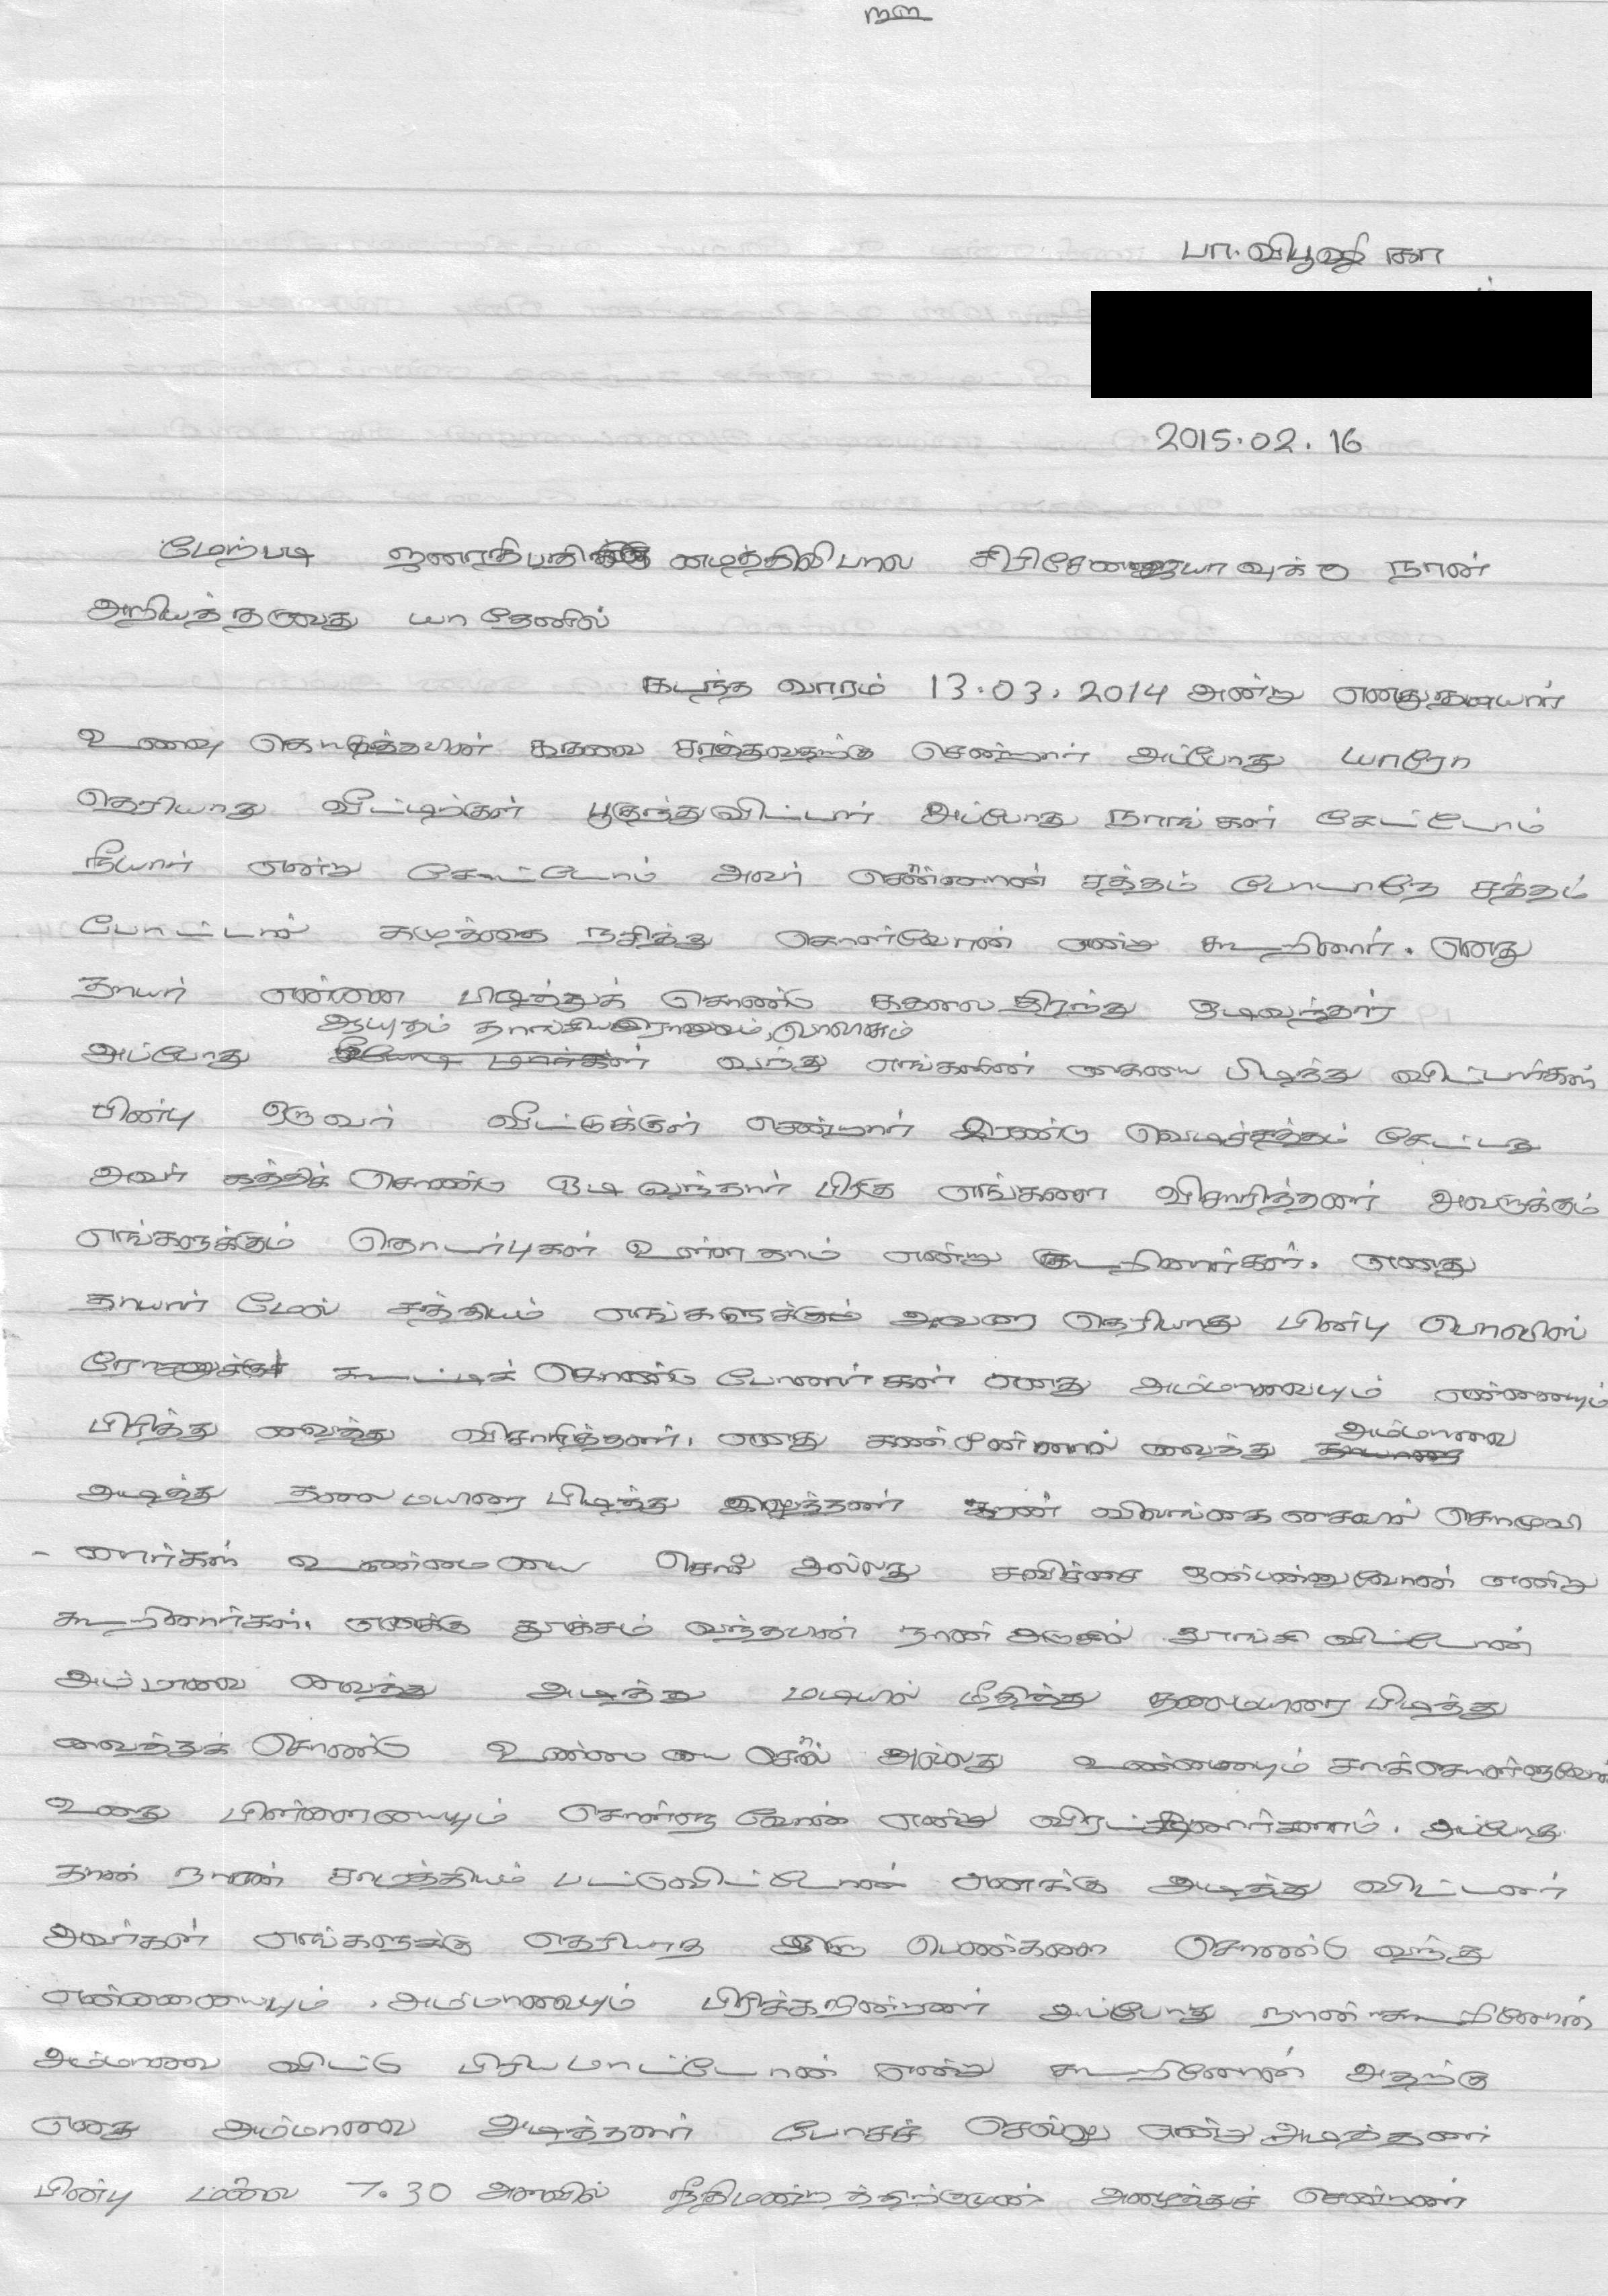 பா. விபூஷிகா
2015.02.16
மேற்படி ஜனாதிபதி மைத்திரிபால சிறிசேன ஐயாவுக்கு நான்
அறியத்தருவது யாதேனில்
கடந்த வாரம் 13.03.2014 அன்று எனது தாயார்
உணவு கொடுத்தபின் கதவை சாத்துவதற்கு சென்றார் அப்போது யாரோ
தெரியாது வீட்டிற்குள் புகுந்துவிட்டார் அப்போது நாங்கள் கேட்டோம்
நீயார் என்று கேட்டோம் அவர் சொன்னான் சத்தம் போடாதே சத்தம்
போட்டால் கழுத்தை நசித்து கொள்வேன் என்று கூறினார். எனது
தாயார் என்னை பிடித்துக் கொண்டு கதவை திறந்து ஓடிவந்தார்
ஆயுதம் தாங்கிய இராணுவம், பொலிசும்
அப்போது வந்து எங்களின் கையை பிடித்து விட்டார்கள்
பின்பு ஒருவர் வீட்டுக்குள் சென்றார் இரண்டு வெடிச்சத்தம் கேட்டது
அவர் கத்திக் கொண்டு ஓடி வந்தார் பிறகு எங்களை விசாரித்தனர் அவருக்கும்
எங்களுக்கும் தொடர்புகள் உள்ளதாம் என்று கூறினார்கள். எனது
தாயார் மேல் சத்தியம் எங்களுக்கும் அவரை தெரியாது பின்பு பொலிஸ்
கூட்டிக் கொண்டு போனார்கள் எனது அம்மாவையும் என்னையும்
பிரித்து வைத்து விசாரித்தனர். எனது கண்முன்னால் வைத்து அம்மாவை
அடித்து தலைமயிரை பிடித்து இழுத்தனர் விலங்கை கையில் கொழுவி
- னார்கள் உண்மையை சொல் அல்லது என்று
கூறினார்கள். எனக்கு தூக்கம் வந்தபின் நான் அருகில் தூங்கி விட்டேன்
அம்மாவை வைத்து அடித்து மடியில் மிதித்து தலைமயிரை பிடித்து
வைத்துக் கொண்டு உண்மையை சொல் அல்லது உன்னையும் சாக்கொள்ளுவேன்
உனது பிள்ளையையும் கொள்ளுவேன் என்று விரட்டினார்களாம். அப்போது
தான் நான் பட்டுவிட்டேன் எனக்கு அடித்து விட்டனர்
அவர்கள் எங்களுக்கு தெரியாத இரு பெண்களை கொண்டு வந்து
என்னையையும், அம்மாவையும் பிரிக்கநின்றனர் அப்போது நான் கூறினேன்
அம்மாவை விட்டு பிரியமாட்டேன் என்று கூறினேன் அதற்கு
எனது அம்மாவை அடித்தனர் போகச் சொல்லு என்று அடித்தனர்
பின்பு மாலை 7.30 அளவில் நீதிமன்றத்திற்குமுன் அழைத்துச் சென்றனர்